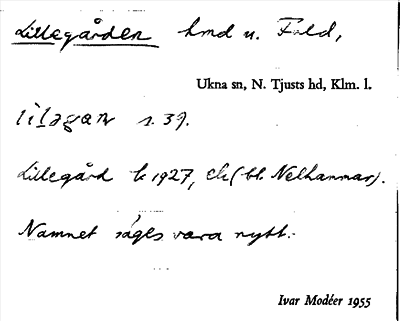 Lillegården hmd u. Fold,
Ukna sn, N. Tjusts hd, Klm. l.
s. 39.
Lillegård k 1927, ek (bl. Nelhammar).
Namnet säges vara nytt.
Ivar Modéer 1955